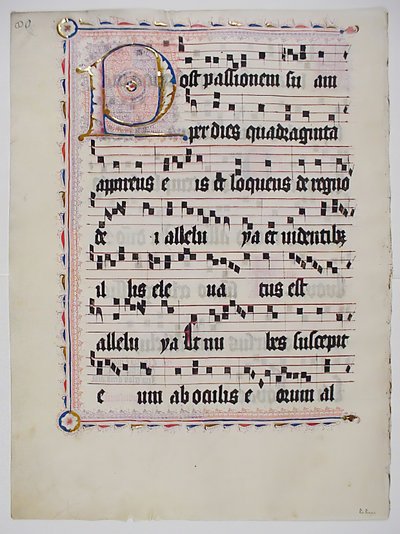 Post passionem su am
per dies quadraginta
apparens e is et loquens de regno
de i allelu ya et uidentibz
il lis ele ua tus est
allelu ya Et nu bes suscepit
e um ab oculis e orum al